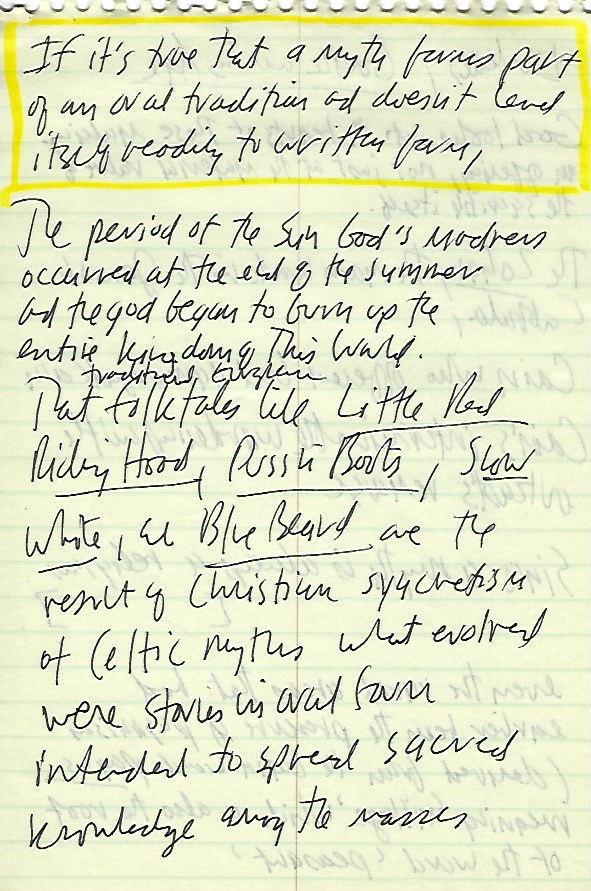 If it's true that a myth forms part
of an oral tradition ad doesn't lend
itself readily to written form,
The period of the Sun God's madness
occurred at the end of the summer
ad the god began to burn up the
entire kingdom, This World.
traditional, European
That folktales like Little Red
Riding Hood, Puss in Boots, Snow
White, ad Blue Beard are the
result of Christian syncretism
of Celtic myths what evolved
were stories in oral form
intended to spread sacred
knowledge among the masses.